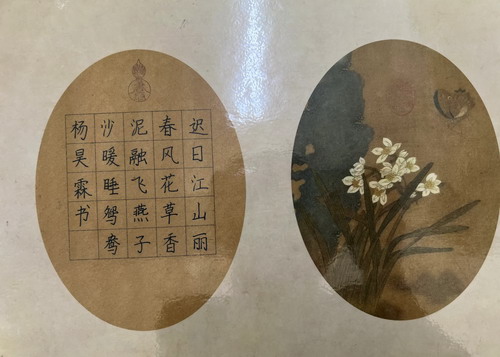 迟日江山丽
春风花草香
泥融飞燕子
沙暖睡鸳鸯
杨昊霖书